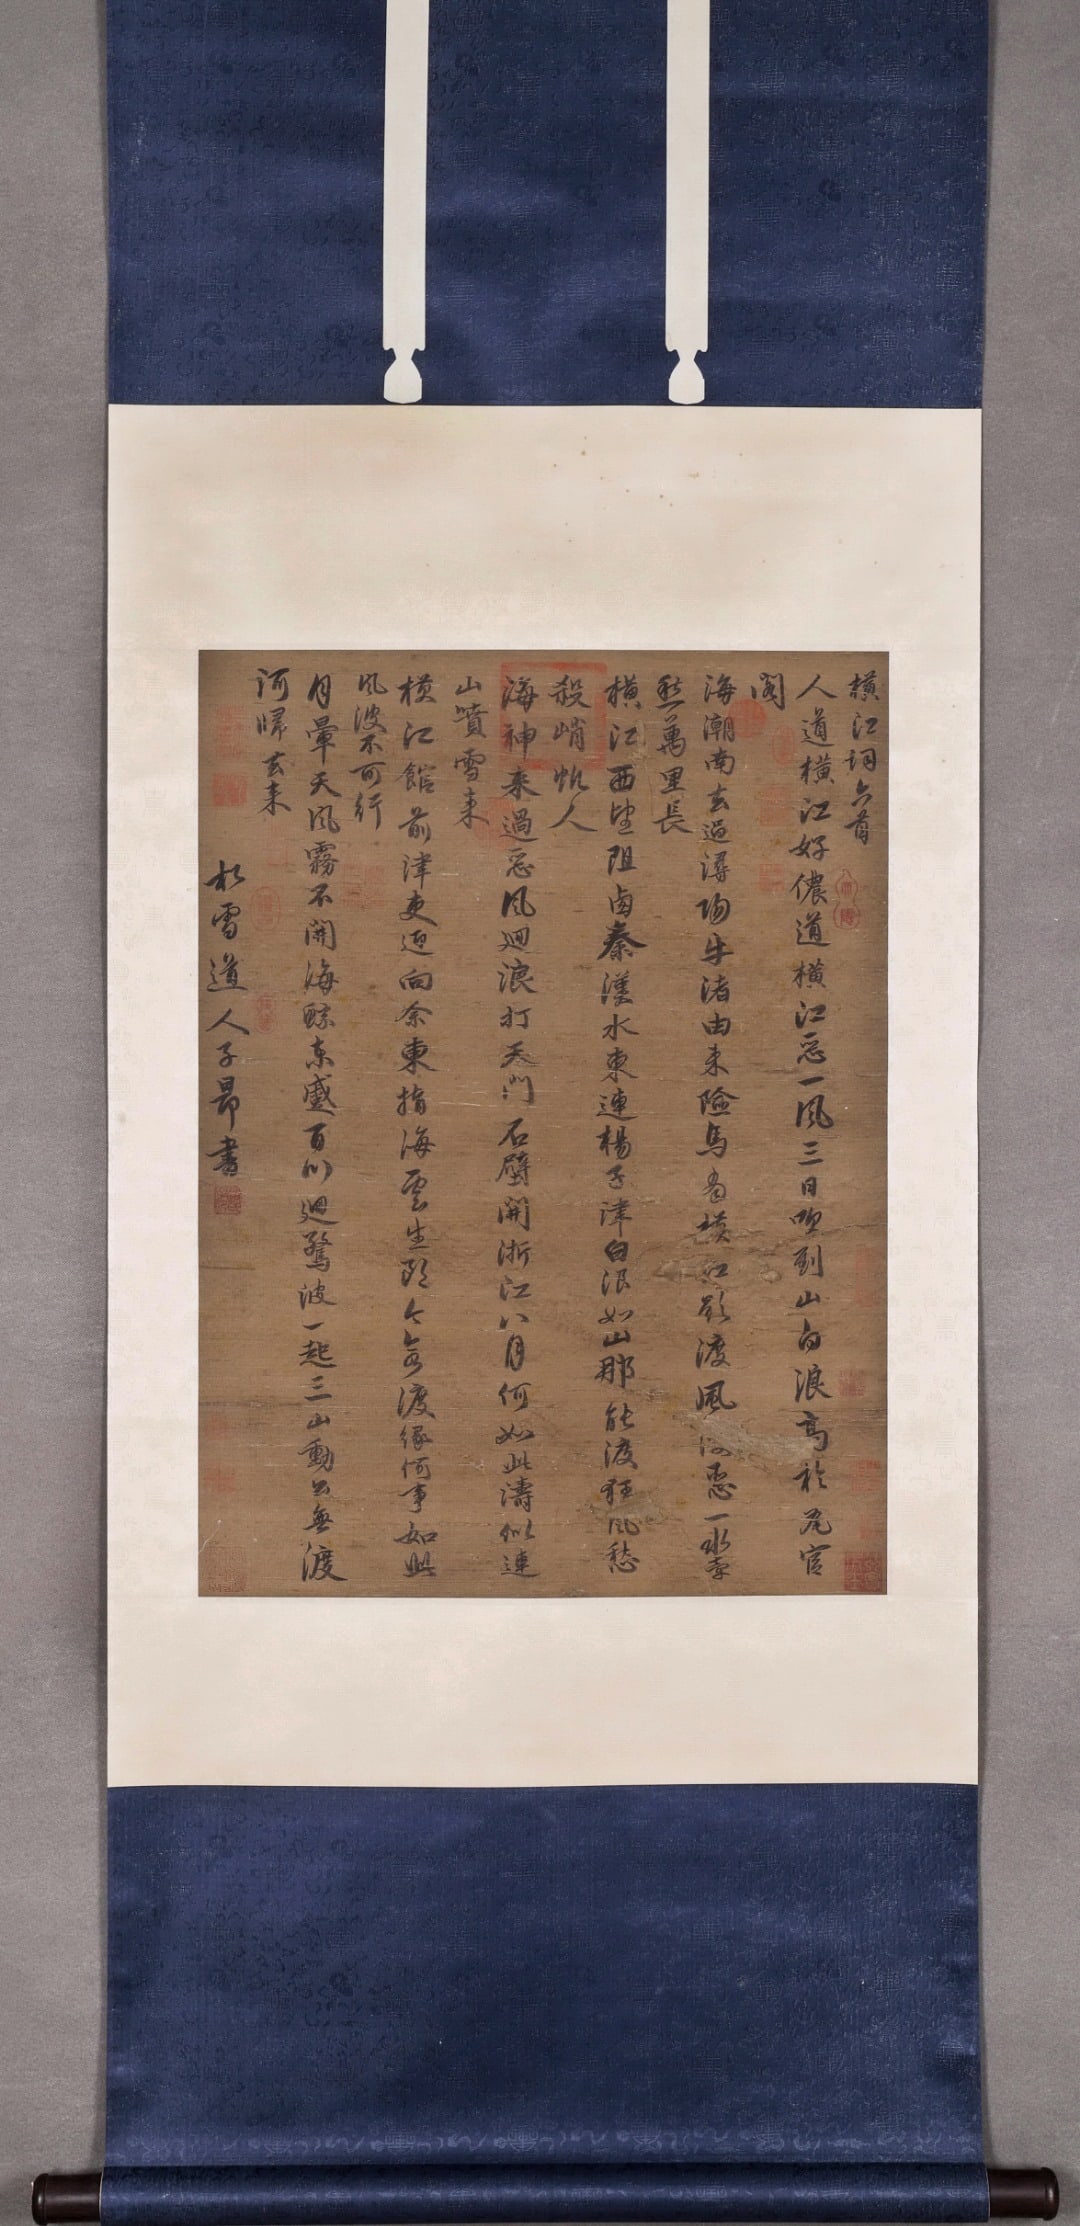 橫江詞六首
人道橫江好儂道橫江惡一風三日吹到山白浪高於瓦官
閣
海潮南去過潯陽牛渚由來險馬當橫江欲渡風波惡一水牽
愁萬里長
橫江西望阻西秦漢水東連楊子津白浪如山那能渡狂風愁
殺峭帆人
海神來過惡風迴浪打天門石壁開浙江八月何如此濤似連
山噴雪來
橫江館前津吏迎向余東指海雲生郎今欲渡緣何事如此
風波不可行
月暈天風霧不開海鯨東蹙百川迴驚波一起三山動公無渡
河歸去來
松雪道人子昂書